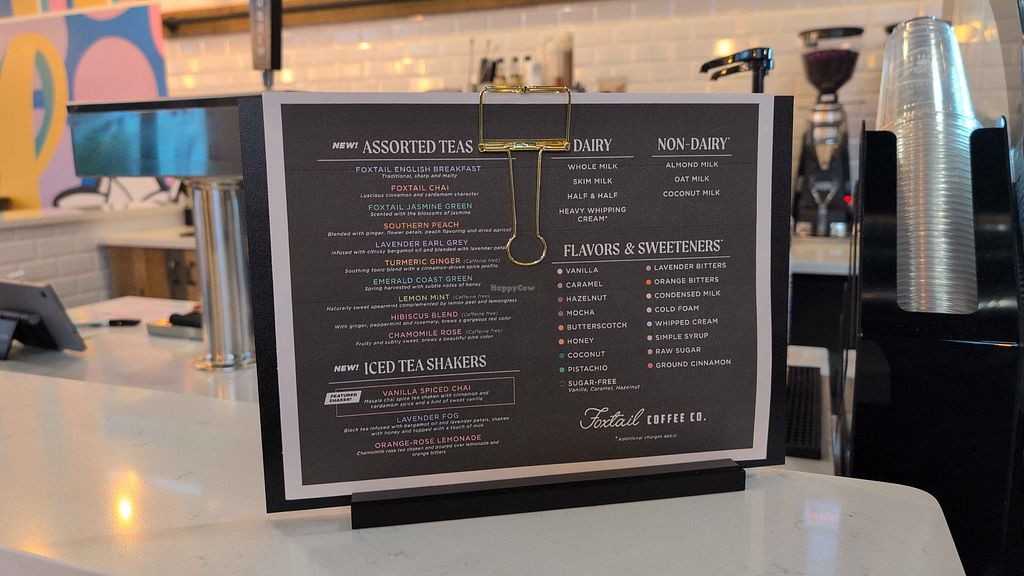 NEW! ASSORTED TEAS
FOXTAIL ENGLISH BREAKFAST
Traditional, sharp and malty
FOXTAIL CHAI
Luscious cinnamon and cardamom character
FOXTAIL JASMINE GREEN
Scented with the blossoms of jasmine
SOUTHERN PEACH
Blended with ginger, flower petals, peach flavoring and dried apricot
LAVENDER EARL GREY
Infused with citrusy bergamot oil and blended with lavender petals
TURMERIC GINGER (Caffeine free)
Soothing tonic blend with a cinnamon-driven spice profile
EMERALD COAST GREEN
Spring harvested with subtle notes of honey
LEMON MINT (Caffeine free)
Naturally sweet spearmint complemented by lemon peel and lemongrass
HIBISCUS BLEND (Caffeine free)
With ginger, peppermint and rosemary, brews a gorgeous red color
CHAMOMILE ROSE (Caffeine free)
Fruity and subtly sweet, brews a beautiful pink color
NEW! ICED TEA SHAKERS
FEATURED
SHAKER!
VANILLA SPICED CHAI
Masala chai spice tea shaken with cinnamon and
cardamom spice and a hint of sweet vanilla
LAVENDER FOG
Black tea infused with bergamot oil and lavender petals, shaken
with honey and topped with a touch of milk
ORANGE-ROSE LEMONADE
Chamomile rose tea shaken and poured over lemonade and
orange bitters
DAIRY
WHOLE MILK
SKIM MILK
HALF & HALF
HEAVY WHIPPING
CREAM*
NON-DAIRY*
ALMOND MILK
OAT MILK
COCONUT MILK
FLAVORS & SWEETENERS*
VANILLA
CARAMEL
HAZELNUT
MOCHA
BUTTERSCOTCH
HONEY
COCONUT
PISTACHIO
SUGAR-FREE
Vanilla, Caramel, Hazelnut
LAVENDER BITTERS
ORANGE BITTERS
CONDENSED MILK
COLD FOAM
WHIPPED CREAM
SIMPLE SYRUP
RAW SUGAR
GROUND CINNAMON
Foxtail COFFEE CO.
*Additional charges apply
HappyCow